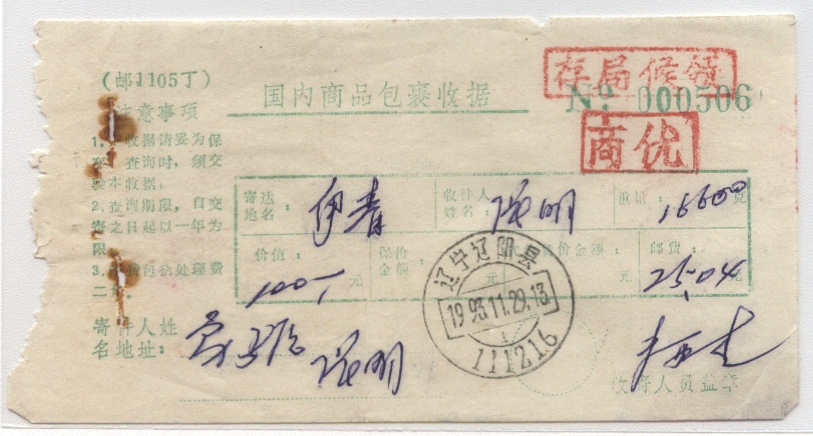 存局候领
(邮1105丁)
国内商品包裹收据
№ 000506
商优
注意事项
1. 收据请妥为保
存 查询时，须交
验本收据；
2. 查询期限，自交
寄之日起以一年为
限
3. 费包括处理费
二
寄达地名： 伊春
收件人姓名： 明
重量： 16600 克
价值： 100 元
保价金额： 元
价金额： 元
邮费： 25.04 元
辽宁辽阳县
1993.11.29.13
1
111216
寄件人姓
名地址： 明
收寄人员盖章